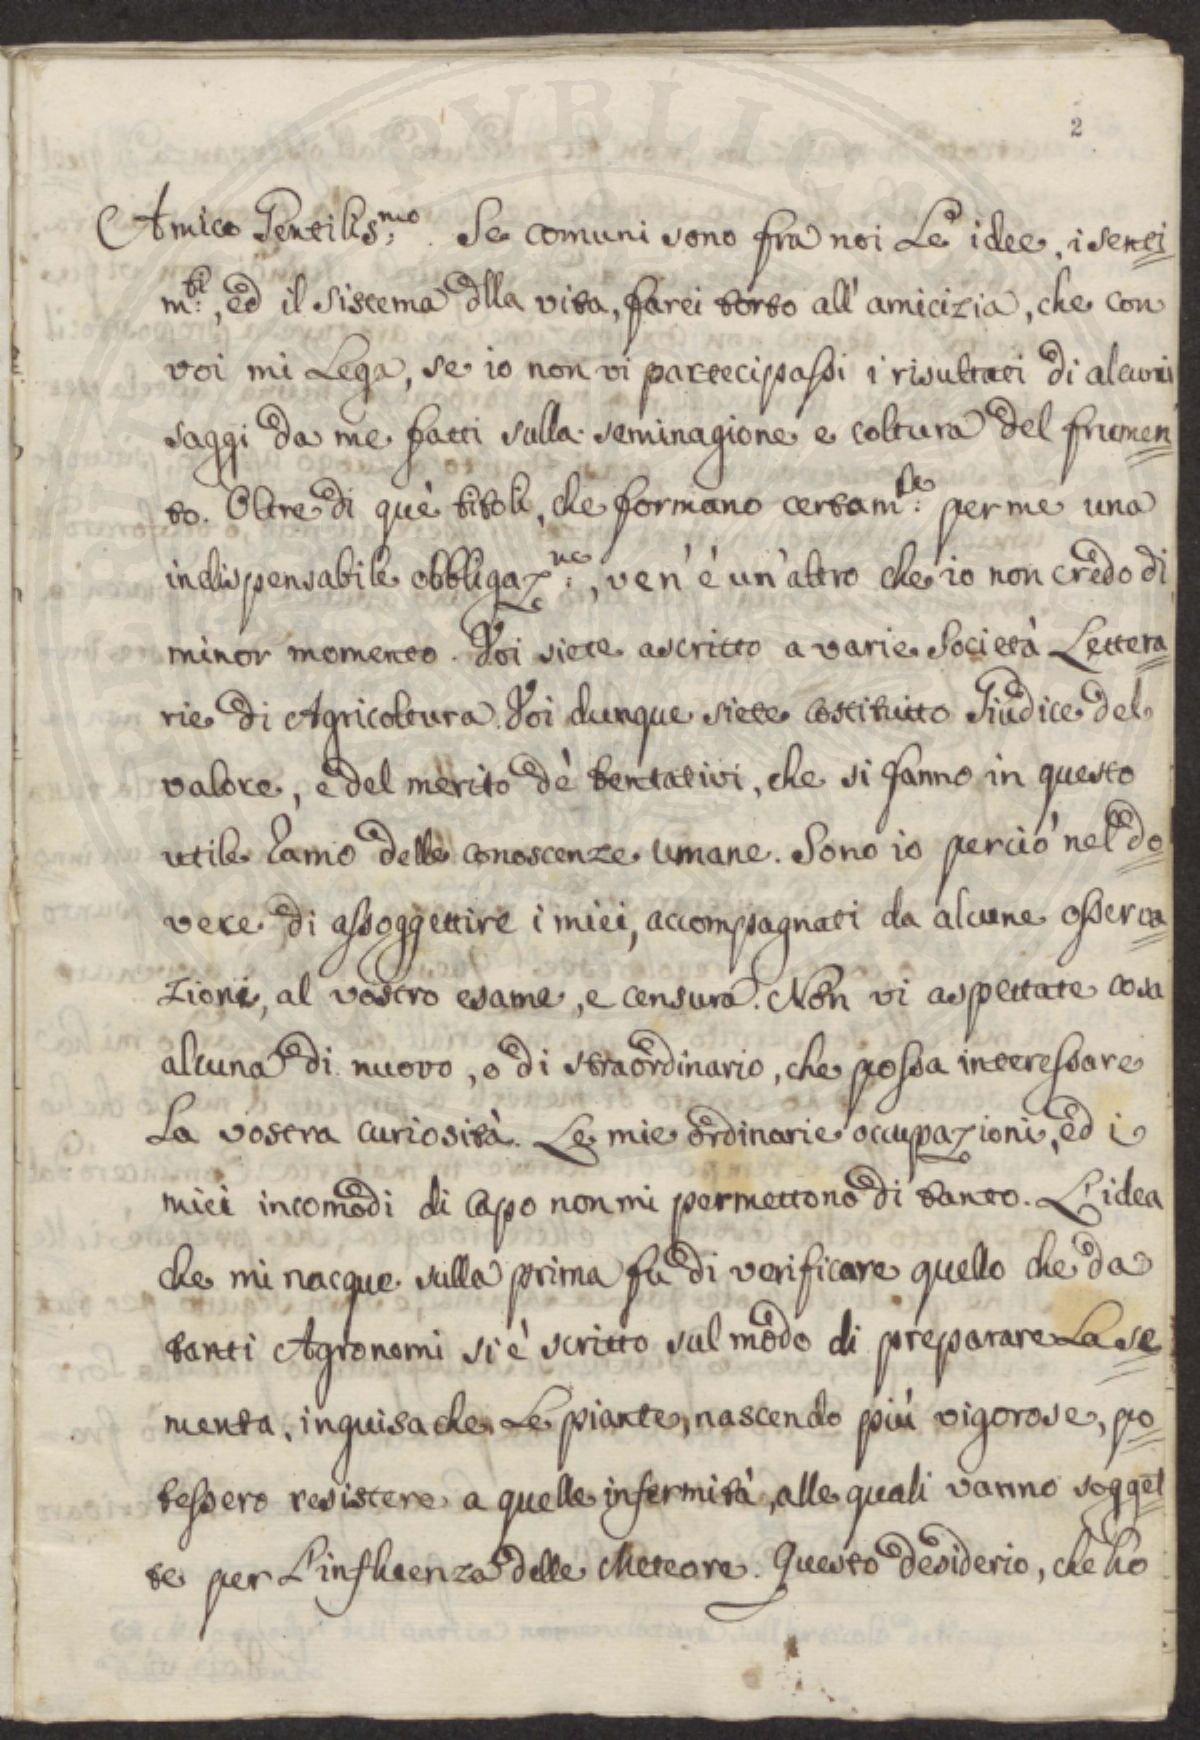 2
Amico Gentilis.mo Se comuni sono frà noi Le idee, i senti
m.ti, ed il sistema dlla vita, farei torto all'amicizia, che con
voi mi Lega, se io non vi partecipassi i risultati di alcuni
saggi da me fatti sulla seminagione e coltura del frumen
to. Oltre di què titoli, che formano certam.te per me una
indispensabile obbligaz.ne, ven'è un'altro che io non credo di
minor momento. Voi siete ascritto a varie Società Lettera
rie di Agricoltura. Voi dunque siete costituito Giudice del
valore, e del merito dè tentativi, che si fanno in questo
utile ramo delle conoscenze umane. Sono io perciò nel do
vere di assoggettire i miei, accompagnati da alcune osserva
zioni, al vostro esame, e censura. Non vi aspettate cosa
alcuna di nuovo, o di straordinario, che possa interessare
La vostra curiosità. Le mie ordinarie occupazioni, ed i
miei incomodi di capo non mi permettono di tanto. L'idea
che mi nacque sulla prima fu di verificare quello che da
tanti Agronomi si è scritto sul modo di preparare La se
menta, inguisache Le piante, nascendo più vigorose, po
tessero resistere a quelle infermità, alle quali vanno sogget
te per L'influenza delle Meteore. Questo desiderio, che hò
PUBLIC